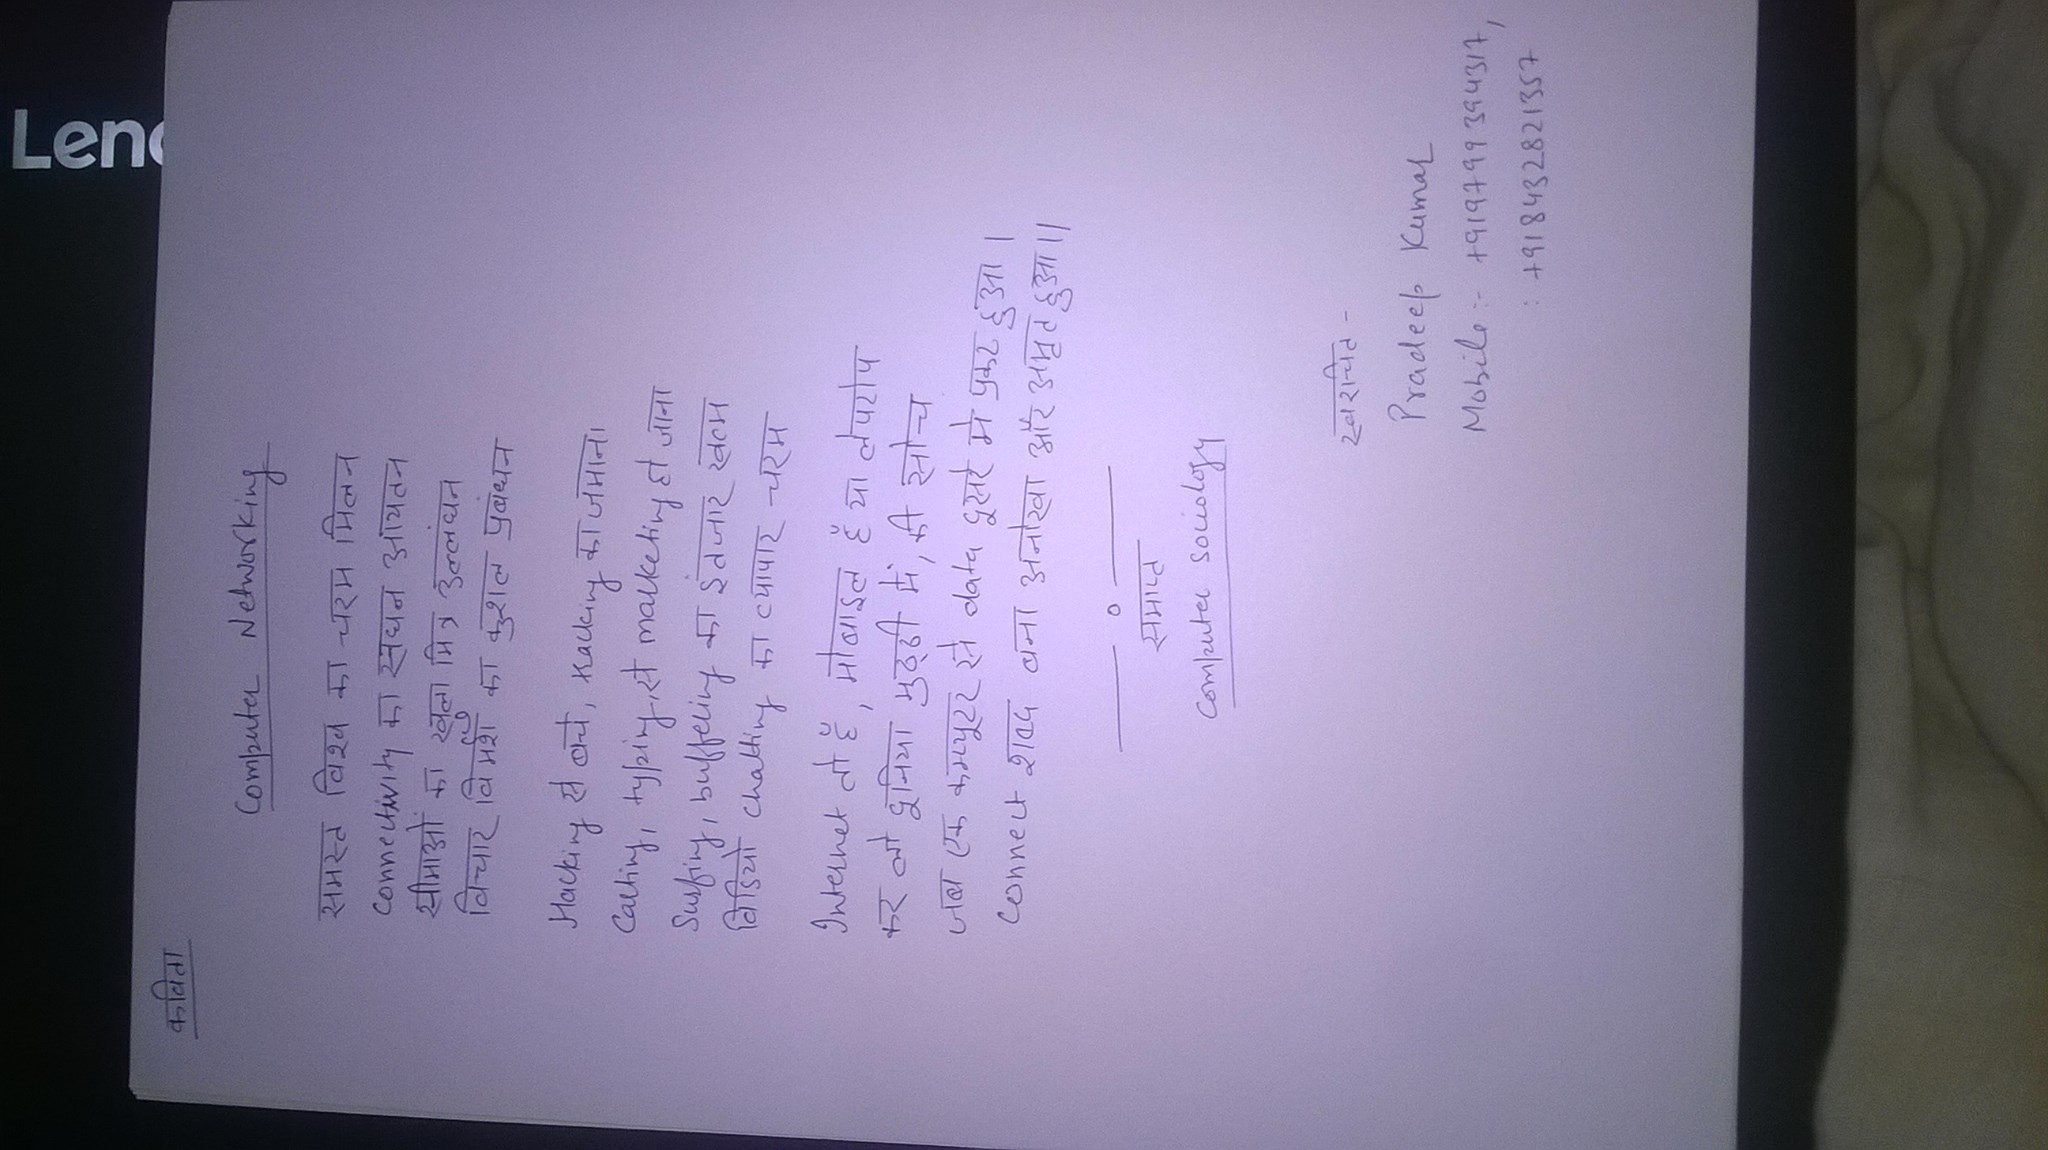 Leno
कविता
Computer Networking
समस्त विश्व का चरम मिलन
Connectivity का सघन आयतन
सीमाओं का खुला मित्र उल्लंघन
विचार विमर्श का कुशल प्रबंधन
Hacking से बचे, Kacking का जमाना
Calling, typing, से marketing हो जाना
Surfing, buffering का इंतजार खत्म
विडियो chatting का व्यापार चरम
Internet तो है, मोबाइल है या लेपटोप
कर लो दुनिया मुठ्ठी में, की सोच
जब एक कम्प्यूटर से data दूसरे मे प्रकट हुआ।
Connect शब्द बना अनोखा और अमृत हुआ।।
— o —
समाप्त
Computer sociology
स्वरचित -
Pradeep Kumar
Mobile :- +919799394317,
: +918432821357